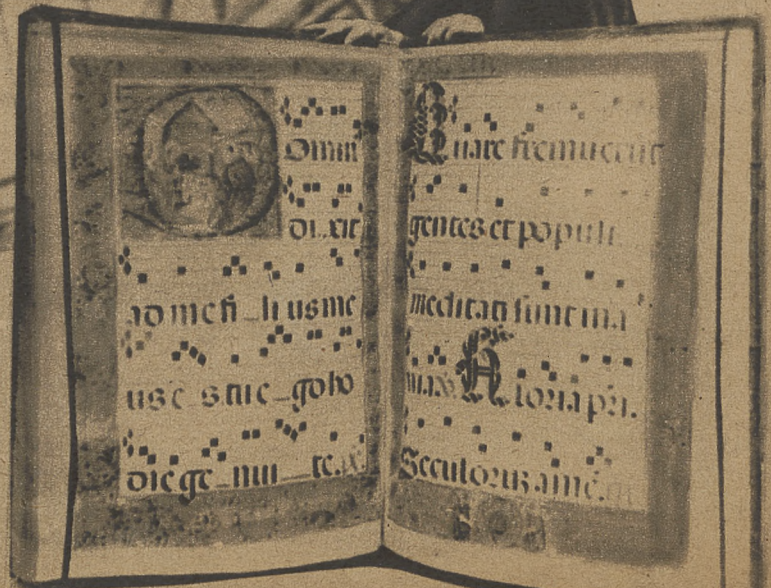 Domin
di..xit
ad me fi_li us me
us e_s tu e_go ho
die ge_nui_te.
Quare fremuerunt
gentes et populi
meditati sunt ina
nia. Gloria pri.
Seculorum ame.